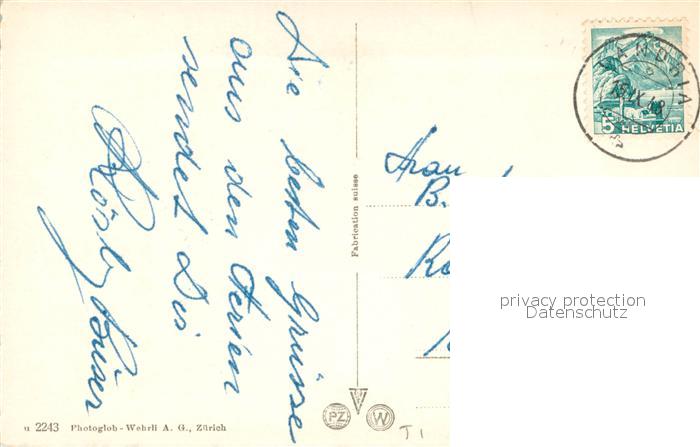 Die besten Grüsse
aus den Ferien
sendet Dir
Rösly
Frau
B.
Fabrication suisse
GANDRIA
15.IX.48
5 HELVETIA
privacy protection
Datenschutz
PZ W
u 2243 Photoglob-Wehrli A. G., Zürich
TI